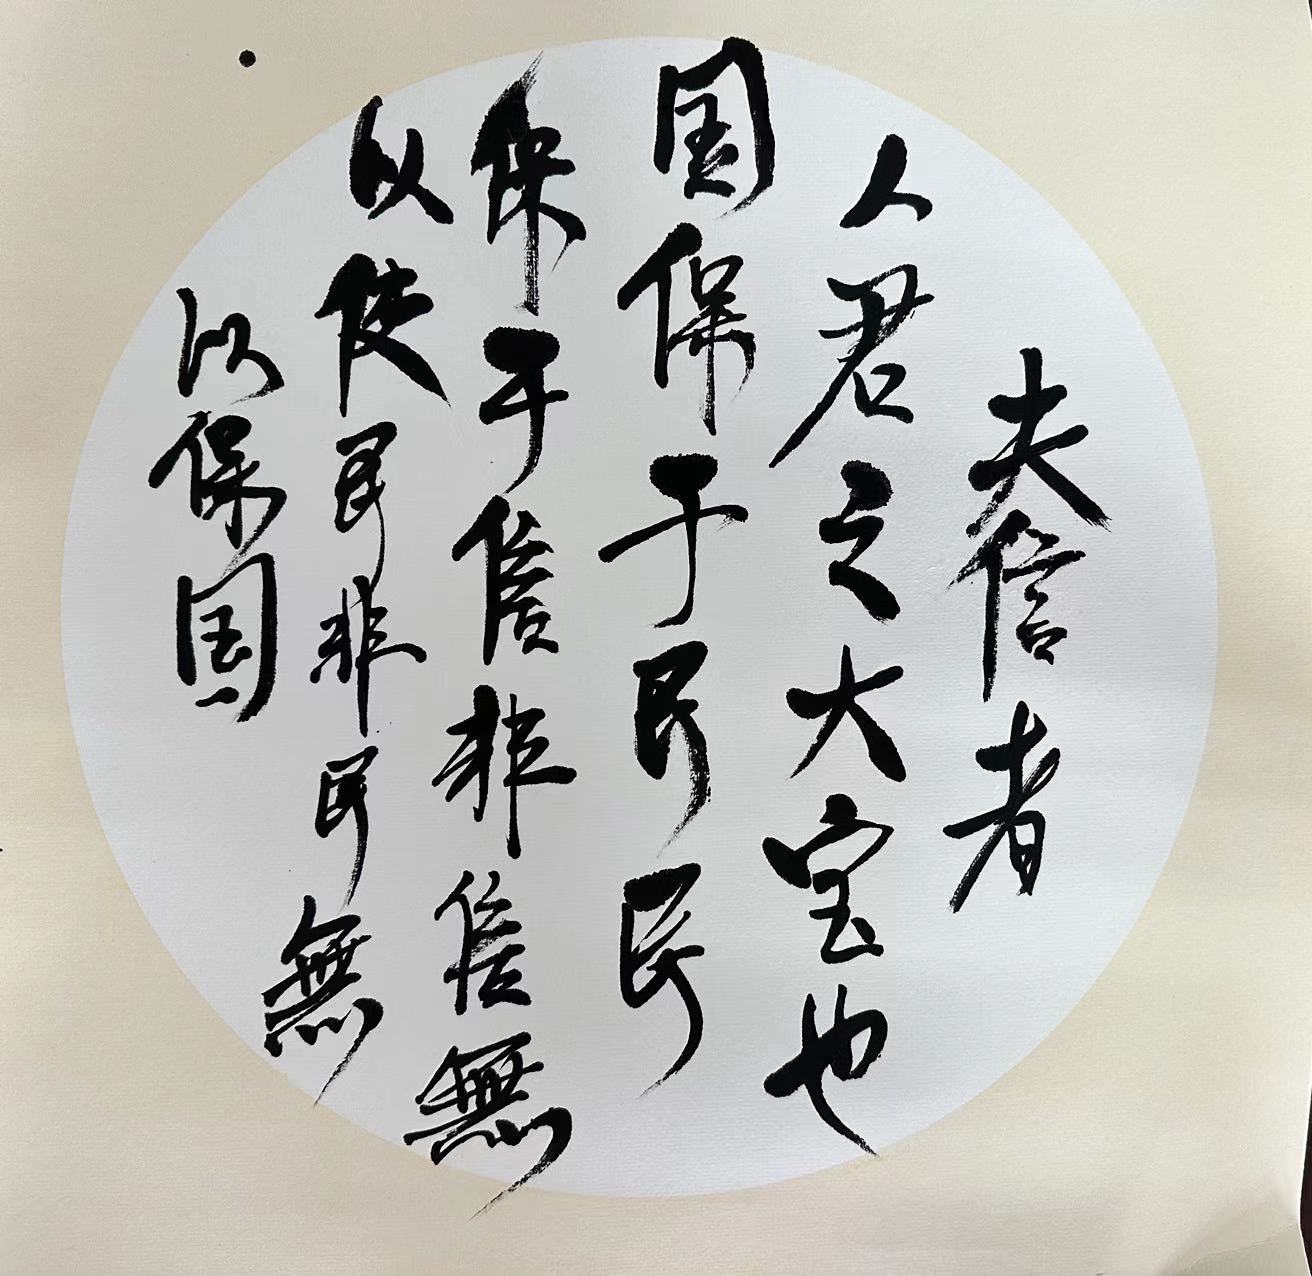 夫信者
人君之大宝也
国保于民民
保于信非信無
以使民非民無
以保国